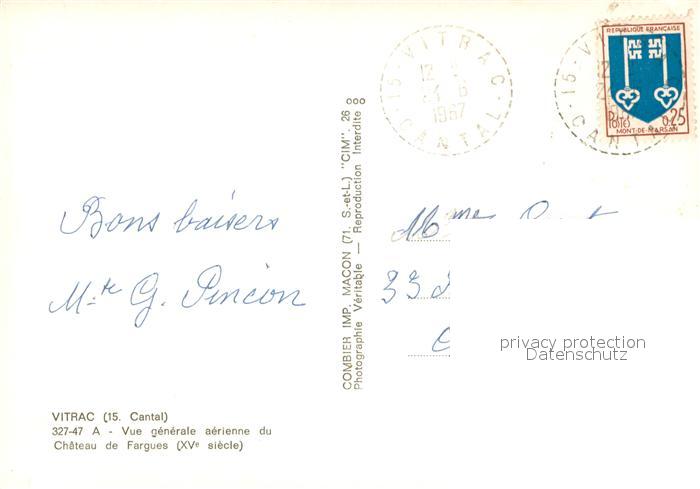 15 - VITRAC
12
6
1967
CANTAL
15 - VITRAC
CANTAL
REPUBLIQUE FRANÇAISE
Postes 0,25
MONT-DE-MARSAN
Bons baisers
Mte G. Pincon
Mme
COMBIER IMP. MACON (71. S.-et-L.) "CIM". 26
Photographie Véritable — Reproduction Interdite
privacy protection
Datenschutz
VITRAC (15. Cantal)
327-47 A - Vue générale aérienne du
Château de Fargues (XVe siècle)